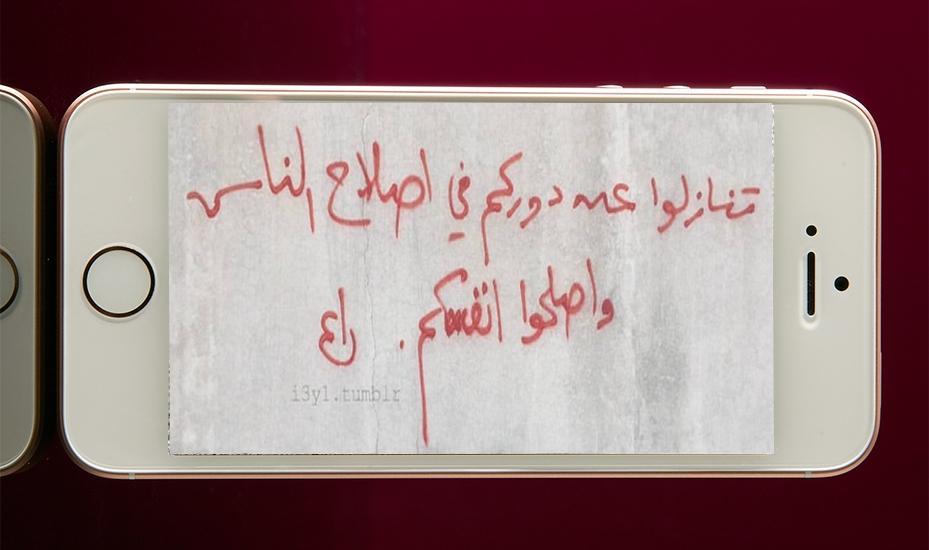 تنازلوا عن دوركم في اصلاح الناس
واصلحوا انفسكم . رائد
i3yl.tumblr